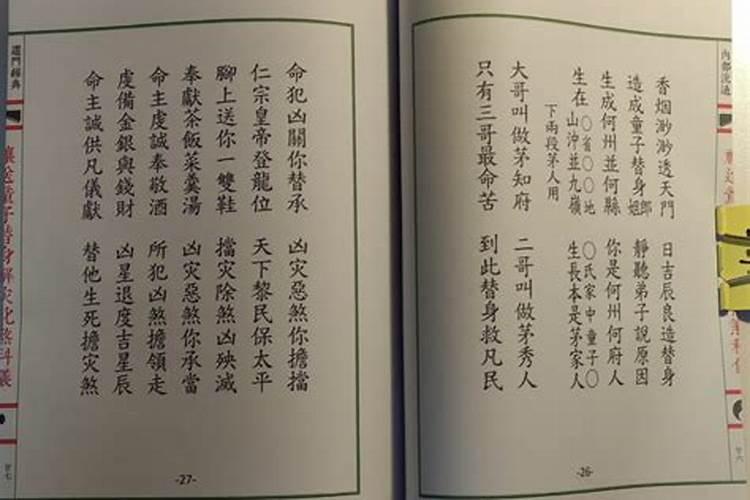 內部流通
香烟渺渺透天門　日吉辰良造替身
造成童子替身郎姐　靜聽弟子說原因
生成何州並何縣　你是何州何府人
生在〇省〇〇地　〇氏家中童子〇
山沖並九嶺　生長本是茅家人
下兩段茅人用
大哥叫做茅知府　二哥叫做茅秀人
只有三哥最命苦　到此替身救凡民
-26-
廿六
命犯凶關你替承　凶灾惡煞你擔擋
仁宗皇帝登龍位　天下黎民保太平
腳上送你一雙鞋　擋灾除煞凶殃滅
奉獻茶飯菜羹湯　凶灾惡煞你承當
命主虔誠奉敬酒　所犯凶煞擔領走
虔備金銀與錢財　凶星退度吉星辰
命主誠供凡儀獻　替他生死擔灾煞
-27-
道門辭典
童子替身解灾化煞科儀
廿七